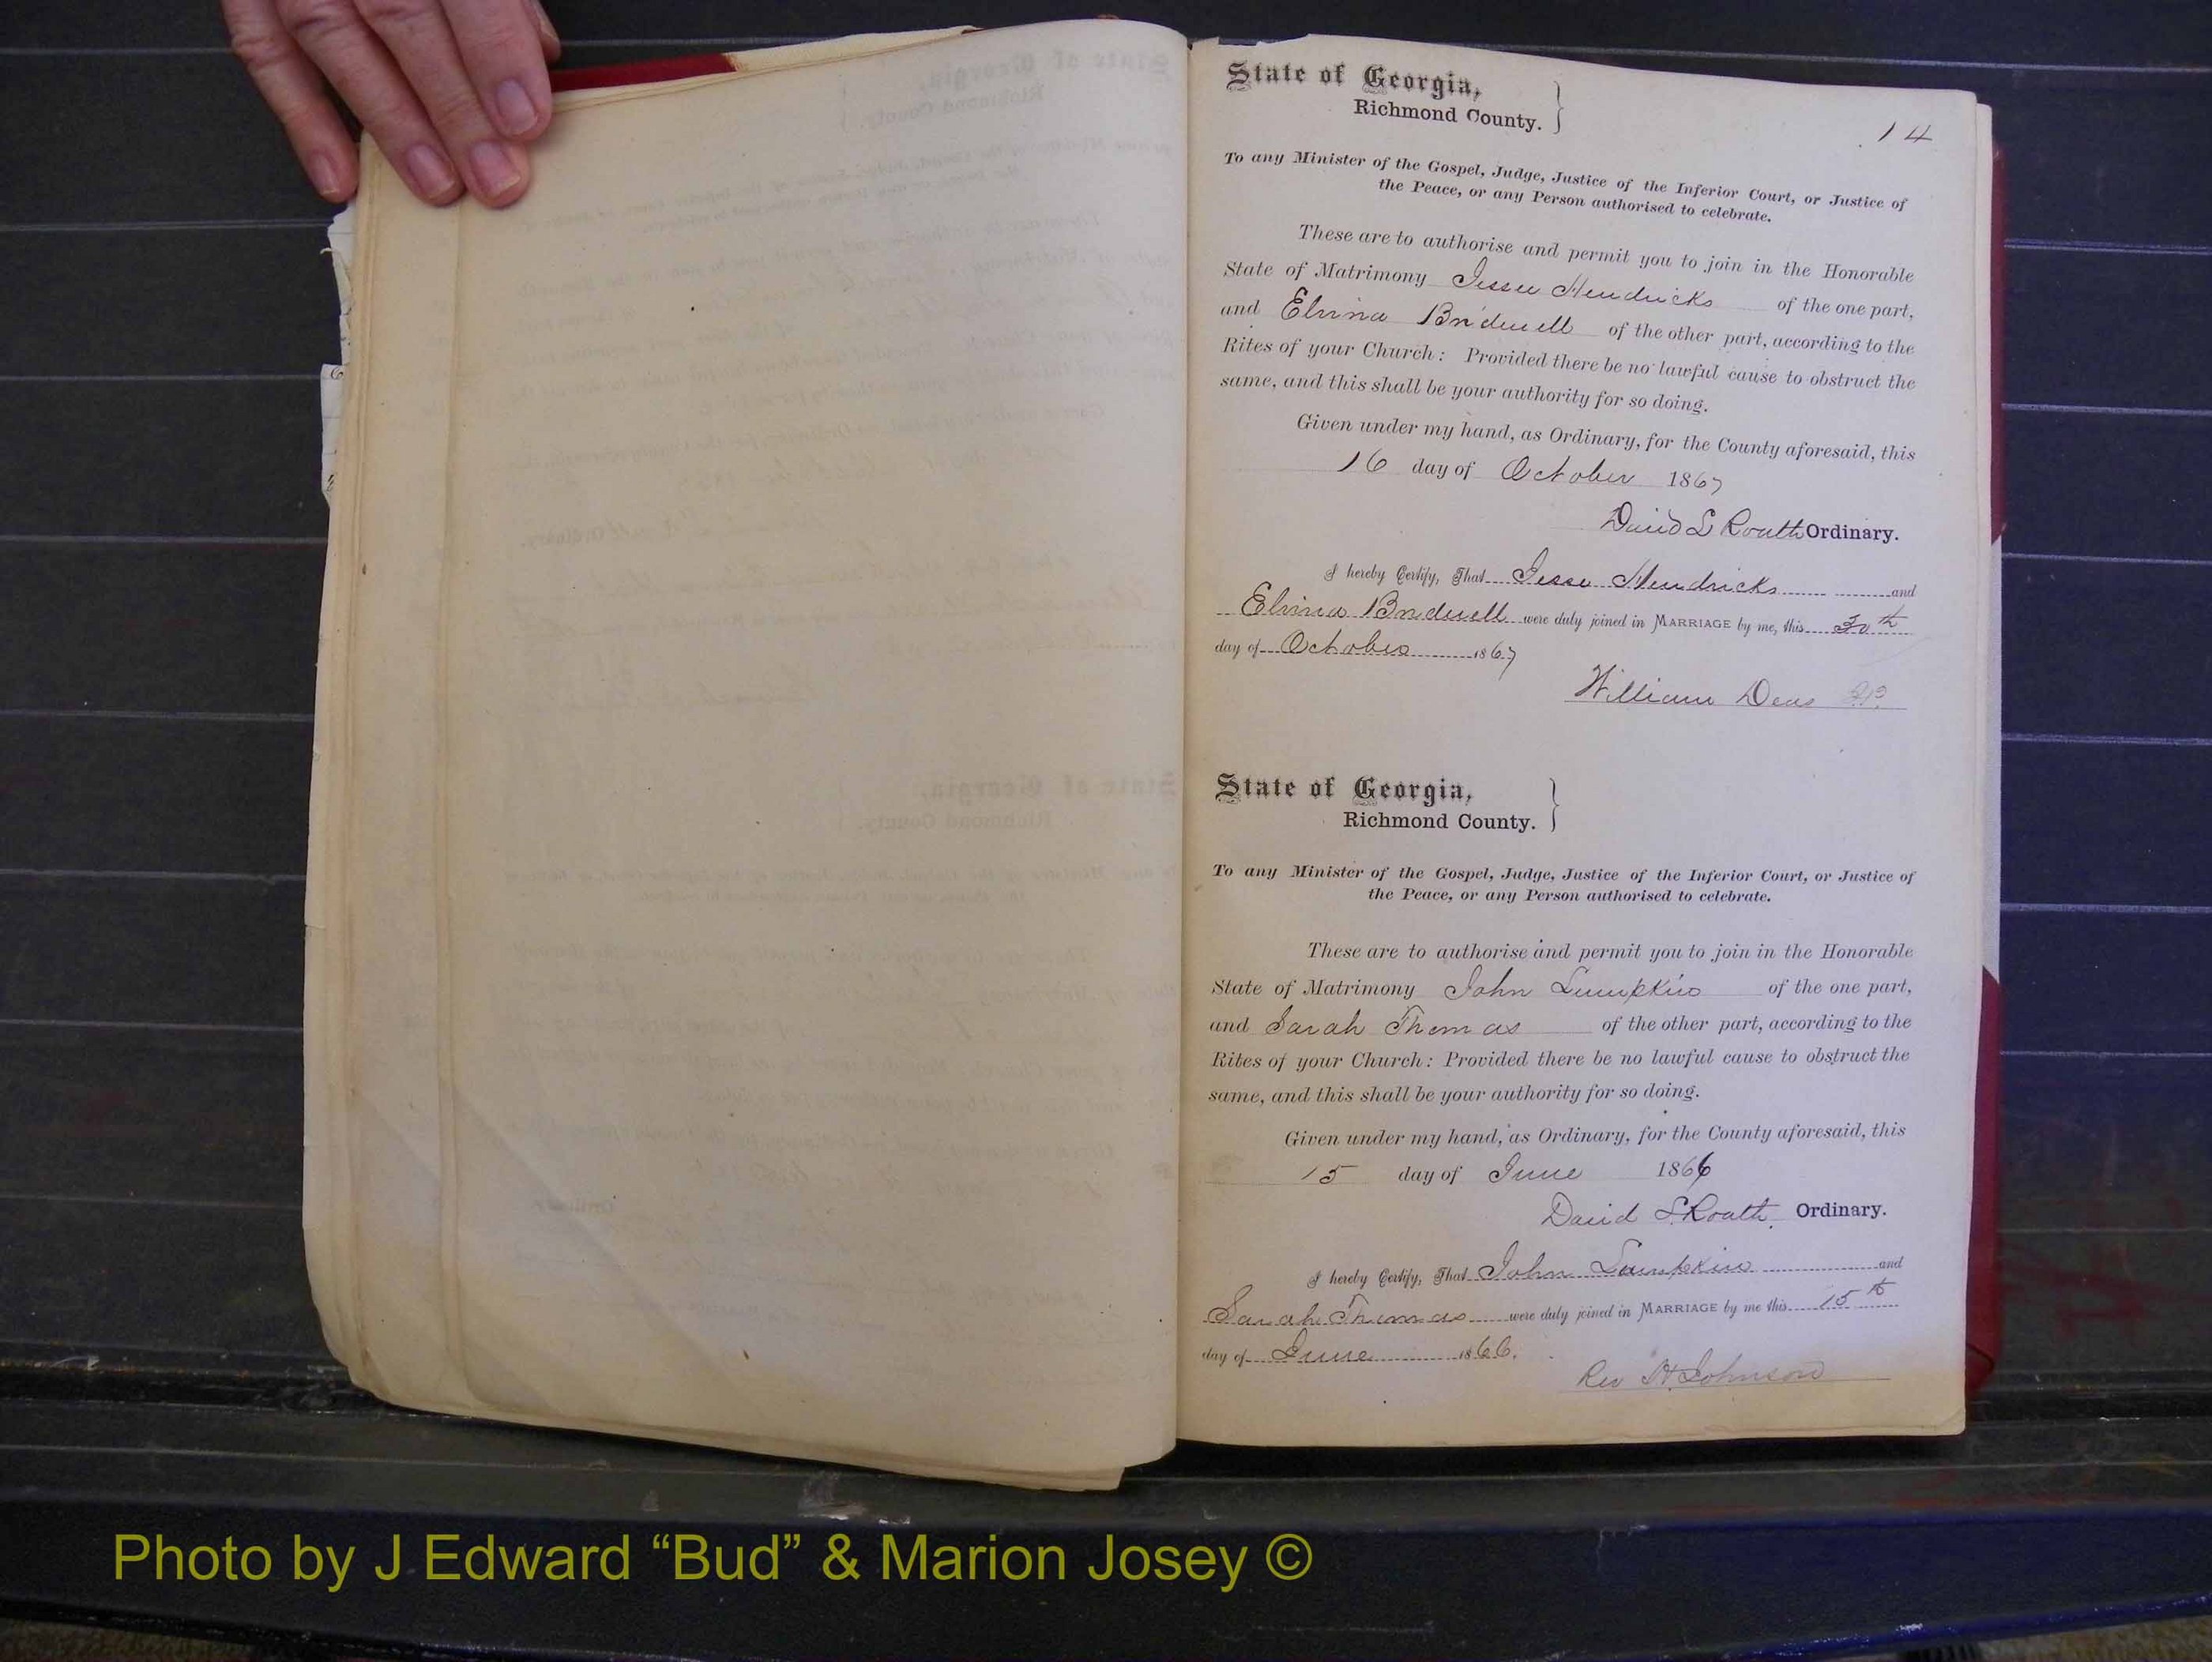 State of Georgia,
Richmond County.
14
To any Minister of the Gospel, Judge, Justice of the Inferior Court, or Justice of
the Peace, or any Person authorised to celebrate.
These are to authorise and permit you to join in the Honorable
State of Matrimony Jesse Hendricks of the one part,
and Elvina Bridwell of the other part, according to the
Rites of your Church: Provided there be no lawful cause to obstruct the
same, and this shall be your authority for so doing.
Given under my hand, as Ordinary, for the County aforesaid, this
16 day of October 1867
David L Roath Ordinary.
I hereby Certify, That Jesse Hendricks and
Elvina Bridwell were duly joined in MARRIAGE by me, this 30th
day of October 1867
William Deas J.P.
State of Georgia,
Richmond County.
To any Minister of the Gospel, Judge, Justice of the Inferior Court, or Justice of
the Peace, or any Person authorised to celebrate.
These are to authorise and permit you to join in the Honorable
State of Matrimony John Lumpkin of the one part,
and Sarah Thomas of the other part, according to the
Rites of your Church: Provided there be no lawful cause to obstruct the
same, and this shall be your authority for so doing.
Given under my hand, as Ordinary, for the County aforesaid, this
15 day of June 1866
David L Roath Ordinary.
I hereby Certify, That John Lumpkin and
Sarah Thomas were duly joined in MARRIAGE by me this 15th
day of June 1866.
Rev H. Johnson
Photo by J Edward “Bud” & Marion Josey ©